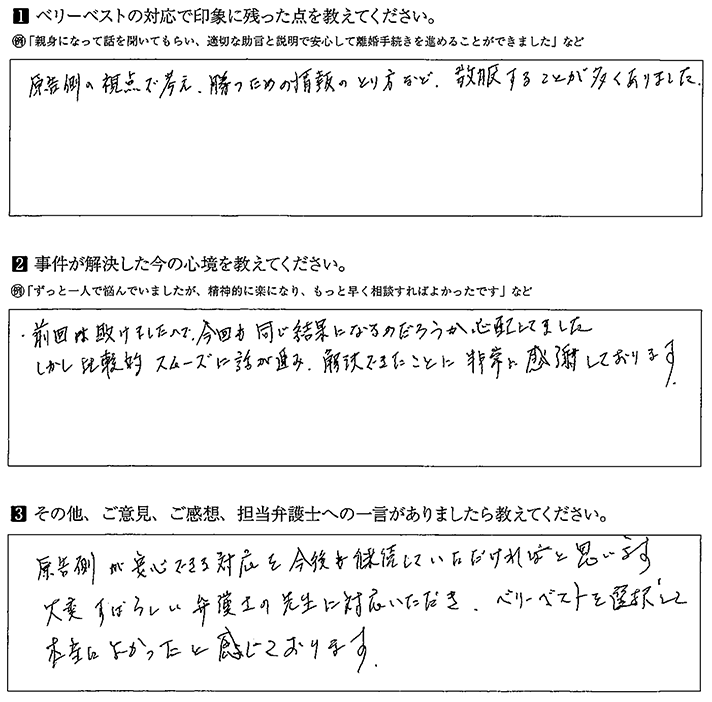 1 ベリーベストの対応で印象に残った点を教えてください。
例「親身になって話を聞いてもらい、適切な助言と説明で安心して離婚手続きを進めることができました」など
原告側の視点で考え、勝つための情報のとり方など、敬服することが多くありました。
2 事件が解決した今の心境を教えてください。
例「ずっと一人で悩んでいましたが、精神的に楽になり、もっと早く相談すればよかったです」など
・前回は敗けましたので、今回も同じ結果になるのだろうか心配してました
しかし比較的スムーズに話が進み、解決できたことに非常に感謝しております。
3 その他、ご意見、ご感想、担当弁護士への一言がありましたら教えてください。
原告側が安心できる対応を今後も継続していただければと思います
大変すばらしい弁護士の先生に対応いただき、ベリーベストを選択して
本当によかったと感じております。